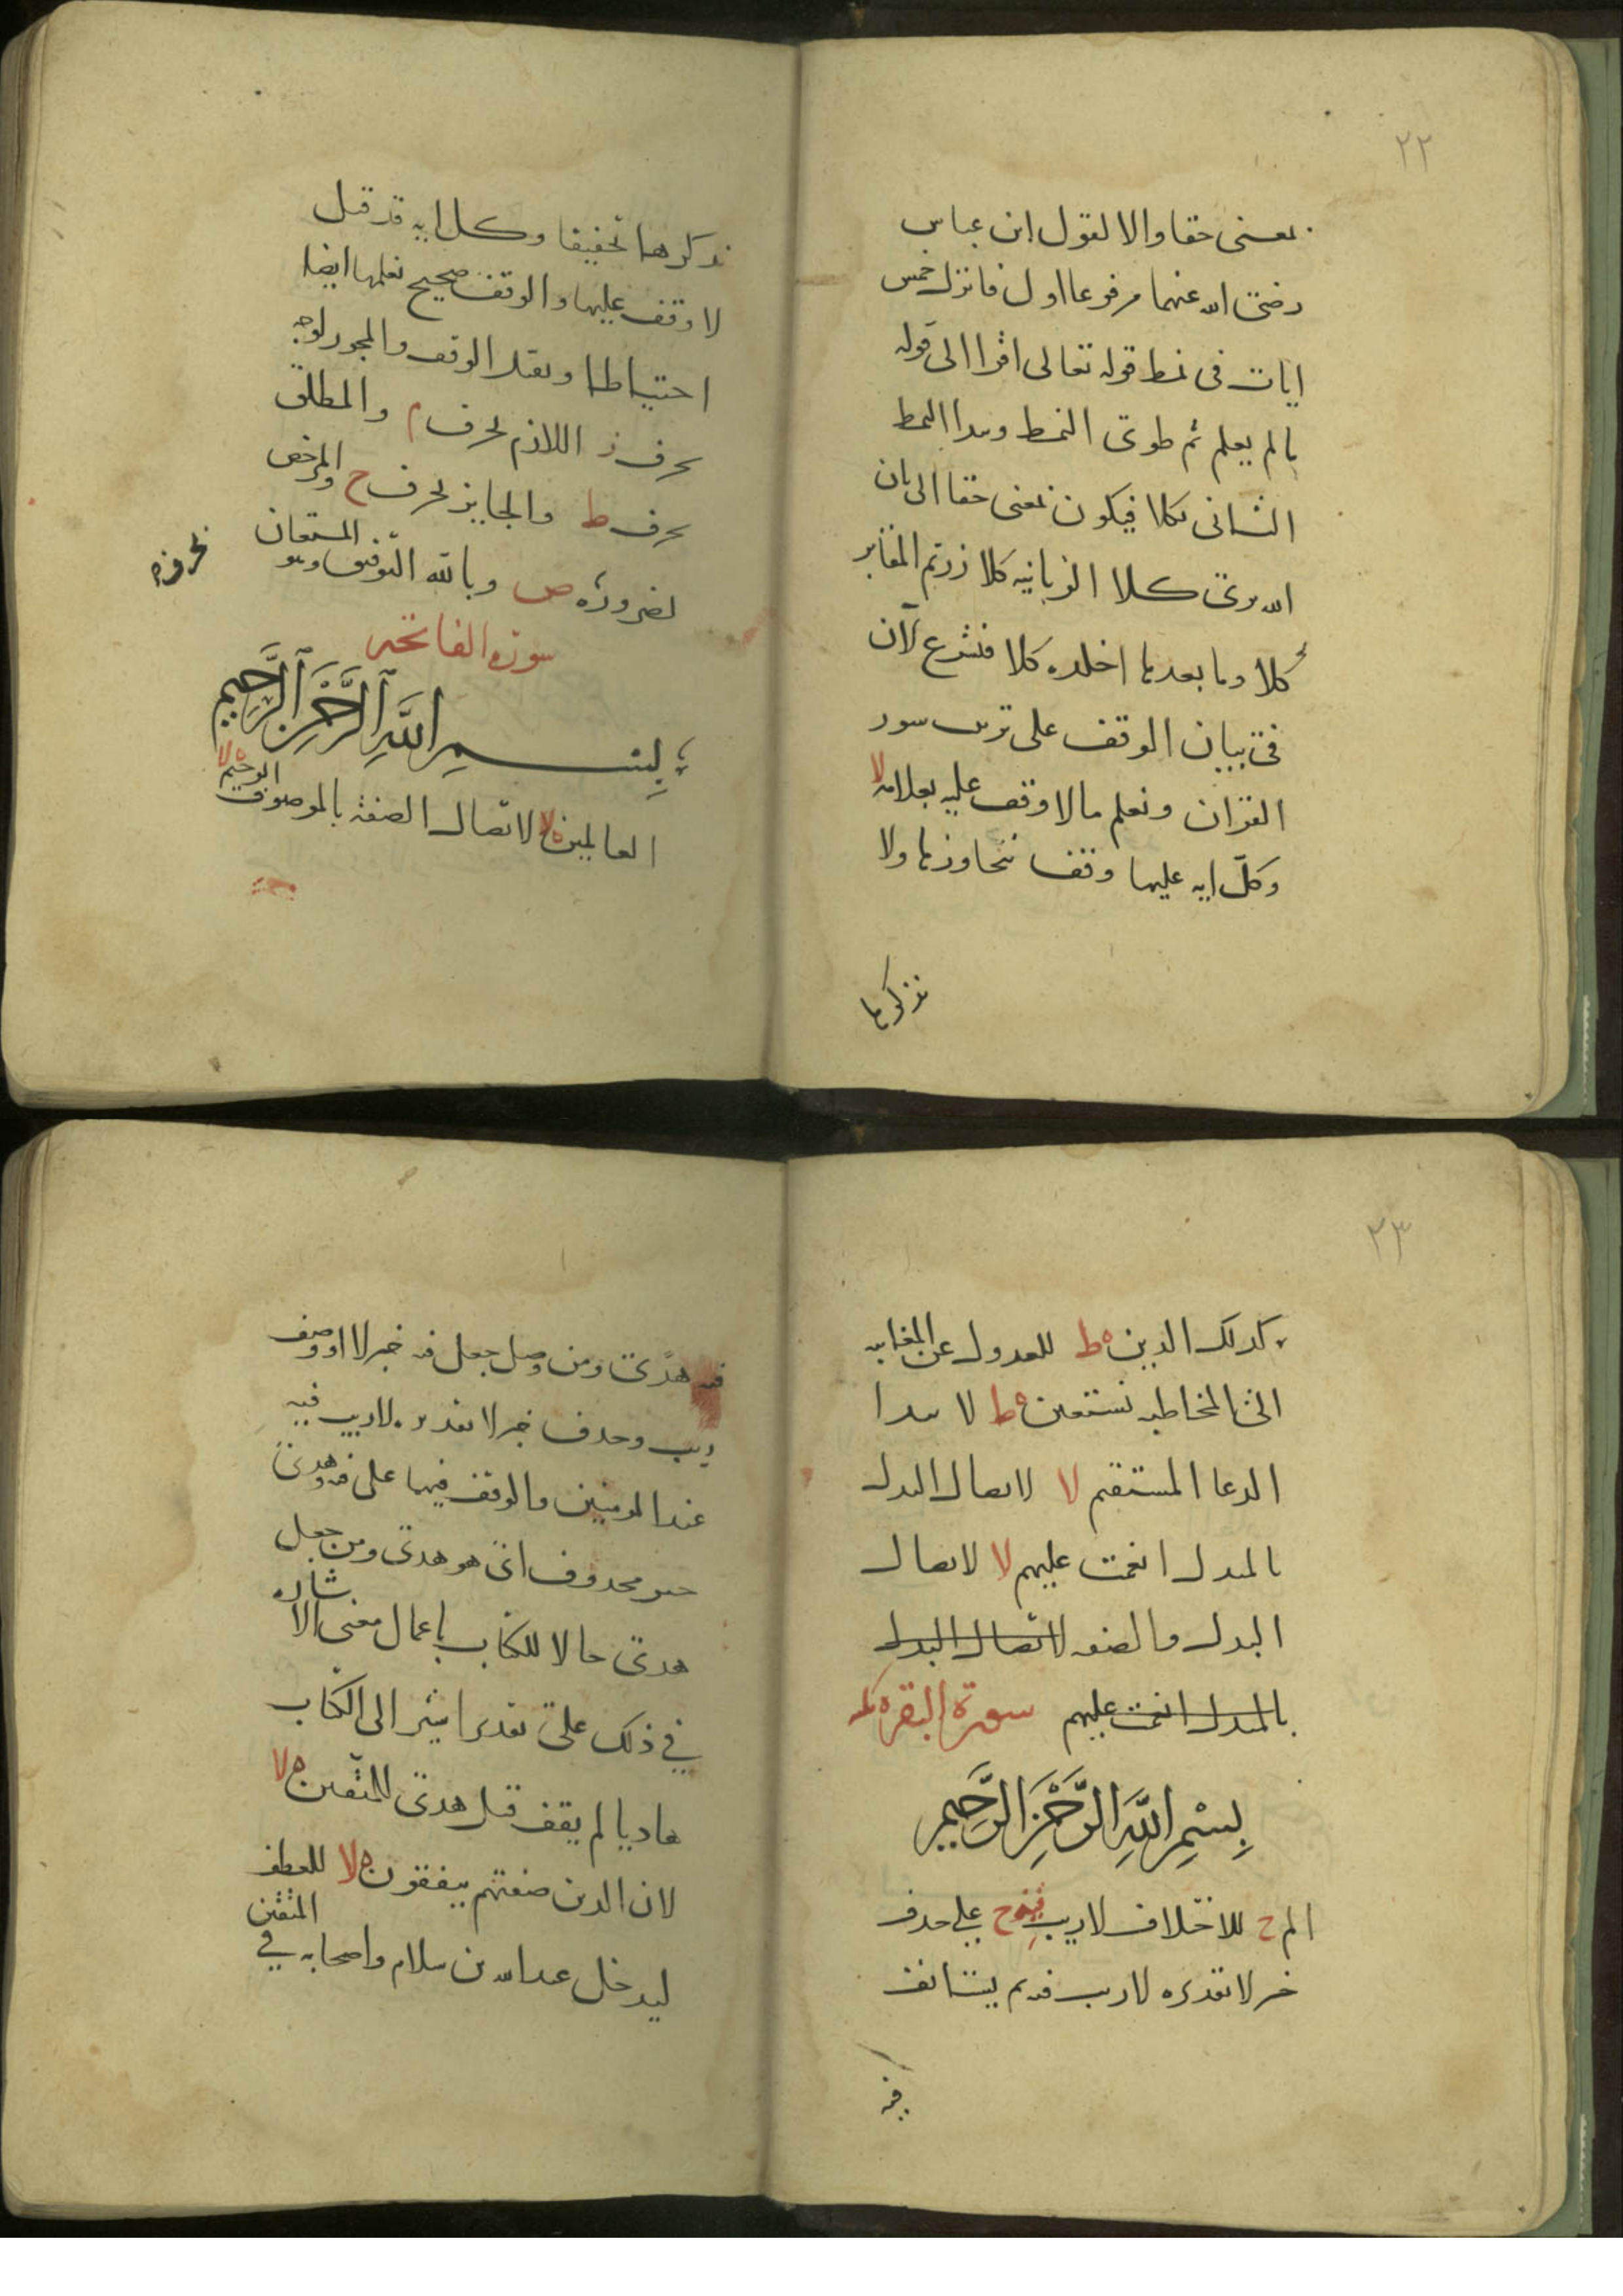 ٢٢
بمعنى حقا والا لقول ابن عباس
رضى الله عنهما مرفوعا اول ما نزل خمس
ايات فى نمط قوله تعالى اقرا الى قوله
ما لم يعلم ثم طوى النمط وبدا النمط
الثانى بكلا فيكون بمعنى حقا الى بان
الله يرى كلا الزبانيه كلا زرتم المقابر
كلا وما بعدها اخلده كلا فنشرع الآن
فى بيان الوقف على ترتيب سور
القران ونعلم مالا وقف عليه بعلامه لا
وكل ايه عليها وقف نتجاوزها ولا
نذكرها
نذكرها تخفيفا وكل ايه قد قيل
لا وقف عليها والوقف صحيح نعلمها ايضا
احتياطا ونقيد الوقف والمجوز لوجه
بحرف ز اللازم بحرف م والمطلق
بحرف ط والجايز بحرف ج والمرخص
لضروره ص وبالله التوفيق وهو المستعان
سورة الفاتحه
بِسمِ اللَّهِ الرَّحْمَنِ الرَّحِيمِ
العالمين لا لاتصال الصفة بالموصوف الرحيم لا
٢٣
كذلك الدين ط للعدول عن المغايبه
الى المخاطبه نستعين ط لا بتدا
الدعا المستقيم لا لاتصال البدل
بالمبدل انعمت عليهم لا لاتصال
البدل والصفه لاتصال البدل
بالمبدل انعمت عليهم سورة البقرة
بِسْمِ اللَّهِ الرَّحْمَنِ الرَّحِيمِ
الم ج للاختلاف لا ريب ج على حذف
خبر لا تقديره لا ريب فيه ثم يستانف
فيه
فيه هدًى ومن وصل جعل فيه خبر لا او وصف
ريب وحذف خبر لا تقديره لا ريب فيه
عند المومنين والوقف فيهما على فيه وهدى
خبر محذوف اى هو هدى ومن جعل
هدى حالا للكتاب باعمال معنى الاشاره
فى ذلك على تقدير اشير الى الكتاب
هاديا لم يقف قبل هدى للمتقين لا
لان الذين صفتهم ينفقون لا للعطف
ليدخل عبد الله بن سلام واصحابه فى المتقين